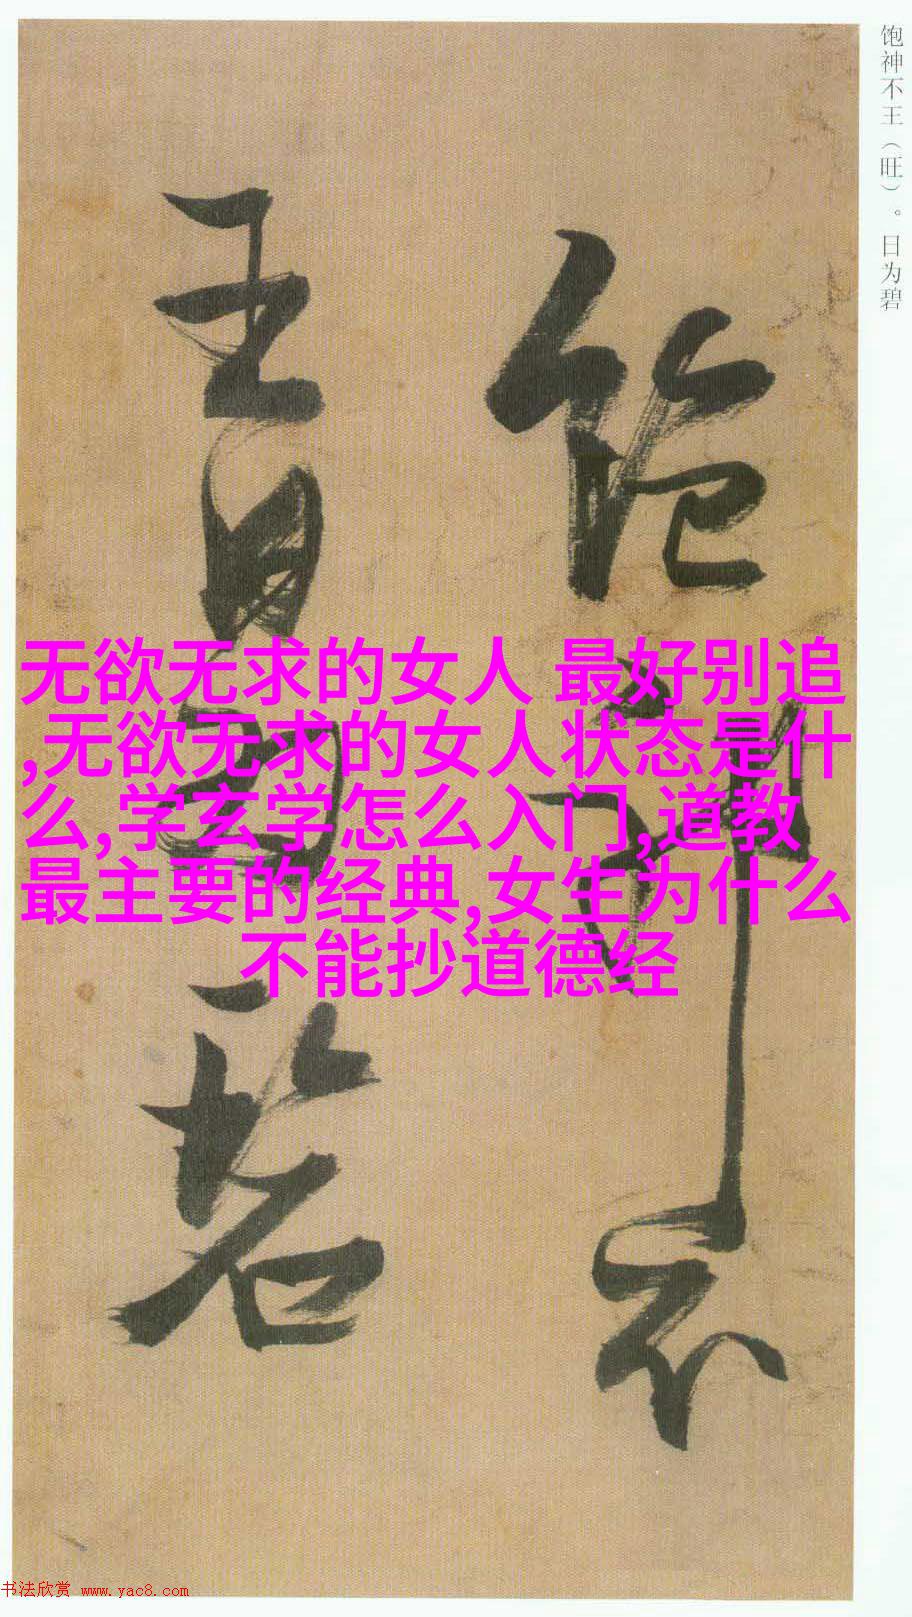 饱神不王（旺）。日为碧
饱神不
王日为
碧
无欲无求的女人 最好别追
,无欲无求的女人状态是什
么,学玄学怎么入门,道教
最主要的经典,女生为什么
不能抄道德经
书法欣赏 www.yac8.com